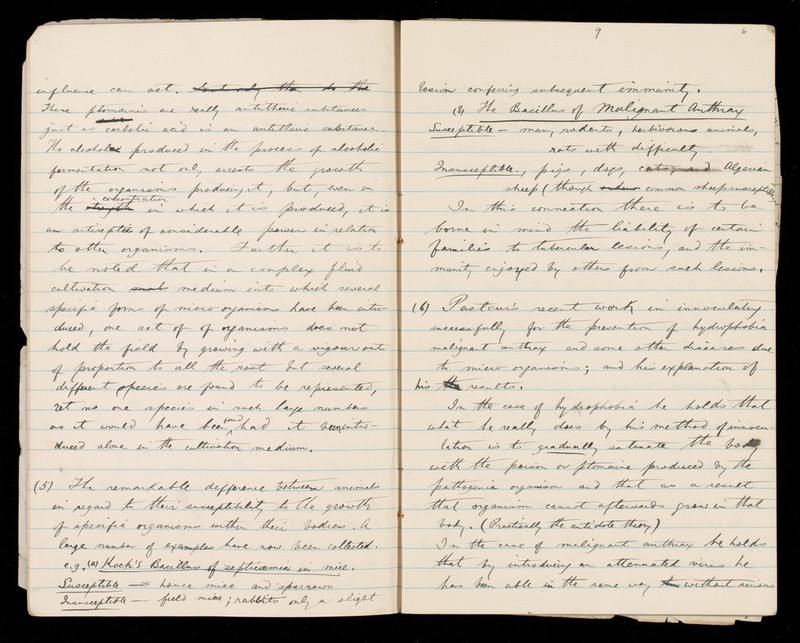 influence can act. Lest only the do the
These ptomaines are really antitheric substances
just as carbolic acid is an antitheric substance.
The alcohol produced in the process of alcoholic
fermentation not only arrests the growth
of the organisms producing it, but, even in
the strength concentration in which it is produced, it is
an antiseptic of considerable power in relation
to other organisms. Further it is to
be noted that in a complex fluid
cultivation medium into which several
specific forms of micro-organisms have been intro-
duced, one set of of organisms does not
hold the field by growing with a vigour out
of proportion to all the rest but several
different species are found to be represented,
yet no one species in such large numbers
as it would have been found, had it been intro-
duced alone in the cultivation medium.
(5) The remarkable difference between animals
in regard to their susceptibility to the growth
of specific organisms within their bodies. A
large number of examples have now been collected.
e.g. (a) Koch's Bacillus of septicæmia in mice.
Susceptible — house mice and sparrows
Insusceptible — field mice; rabbits only a slight
9 6
lesion conferring subsequent immunity.
The Bacillus of Malignant Anthrax
Susceptible — man, rodents, herbivorous animals,
rats with difficulty.
Insusceptible, pigs, dogs, cats, and Algerian
sheep (though common sheep susceptible)
In this connection there is to be
borne in mind the liability of certain
families to tubercular lesions, and the im-
munity enjoyed by others from such lesions.
(6) Pasteur's recent work in innoculating
successfully for the prevention of hydrophobia
malignant anthrax and some other diseases due
to micro organisms; and his explanation of
his the results.
In the case of hydrophobia he holds that
what he really does by his method of innocu-
lation is to gradually saturate the body
with the poison or ptomaine produced by the
pathogenic organism and that as a result
that organism cannot afterwards grow in that
body. (Practically the antidote theory)
In the case of malignant anthrax he holds
that by introducing an attenuated virus he
has been able in the same way to without serious